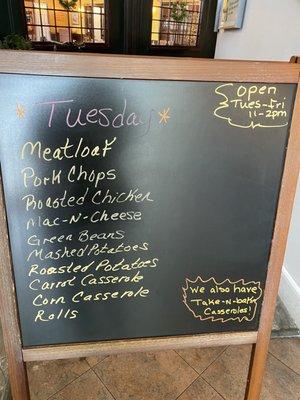 Tuesday
Open
Tues-Fri
11-2pm
Meatloaf
Pork Chops
Roasted Chicken
Mac-N-Cheese
Green Beans
Mashed Potatoes
Roasted Potatoes
Carrot Casserole
Corn Casserole
Rolls
We also Have
Take-N-bake
Casseroles!